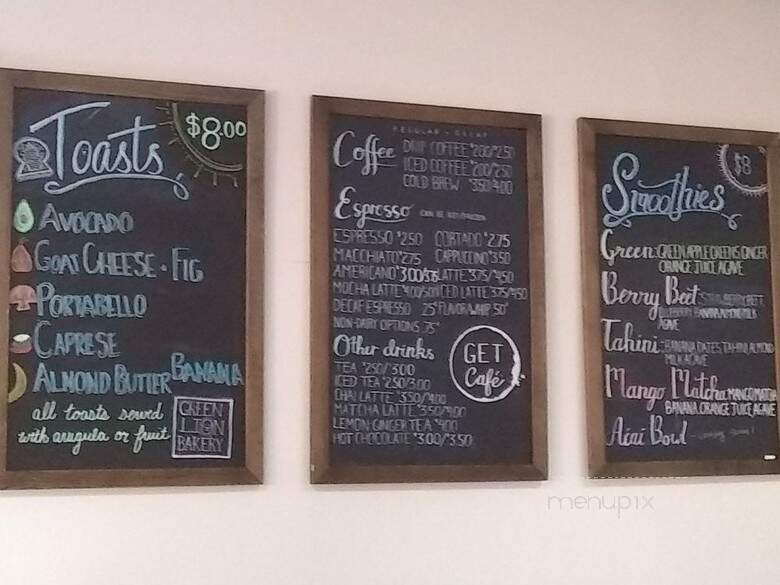 Toasts
$8.00
AVOCADO
GOAT CHEESE - FIG
PORTABELLO
CAPRESE
ALMOND BUTTER BANANA
all toasts served
with arugula or fruit
GREEN
LION
BAKERY
REGULAR - DECAF
Coffee
DRIP COFFEE $2.00/2.50
ICED COFFEE $2.00/2.50
COLD BREW $3.50/4.00
Espresso
ESPRESSO $2.50 CORTADO $2.75
MACCHIATO $2.75 CAPPUCCINO $3.50
AMERICANO $3.00/3.75 LATTE $3.75/4.50
MOCHA LATTE $4.00/5.00 ICED LATTE $3.75/4.50
DECAF ESPRESSO 25¢ FLAVOR/WHIP .50¢
NON-DAIRY OPTIONS .75¢
Other drinks
TEA $2.50/3.00
ICED TEA $2.50/3.00
CHAI LATTE $3.50/4.00
MATCHA LATTE $3.50/4.00
LEMON GINGER TEA $4.00
HOT CHOCOLATE $3.00/3.50
GET
Café
$8
Smoothies
Green: GREEN APPLE GREENS GINGER
ORANGE JUICE AGAVE
Berry Beet: STRAWBERRY BEET
BLUEBERRY BANANA ALMOND MILK
AGAVE
Tahini: BANANA DATES TAHINI ALMOND
MILK AGAVE
Mango Matcha: MANGO MATCHA
BANANA ORANGE JUICE AGAVE
Acai Bowl - coming soon!
menupix